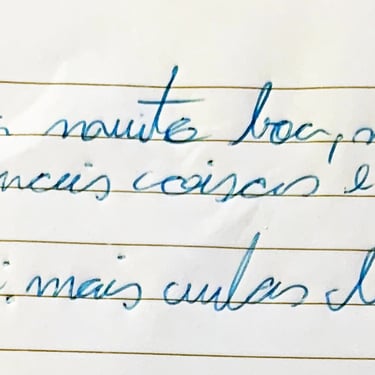 muito boa,
mais coisas e
mais aulas d